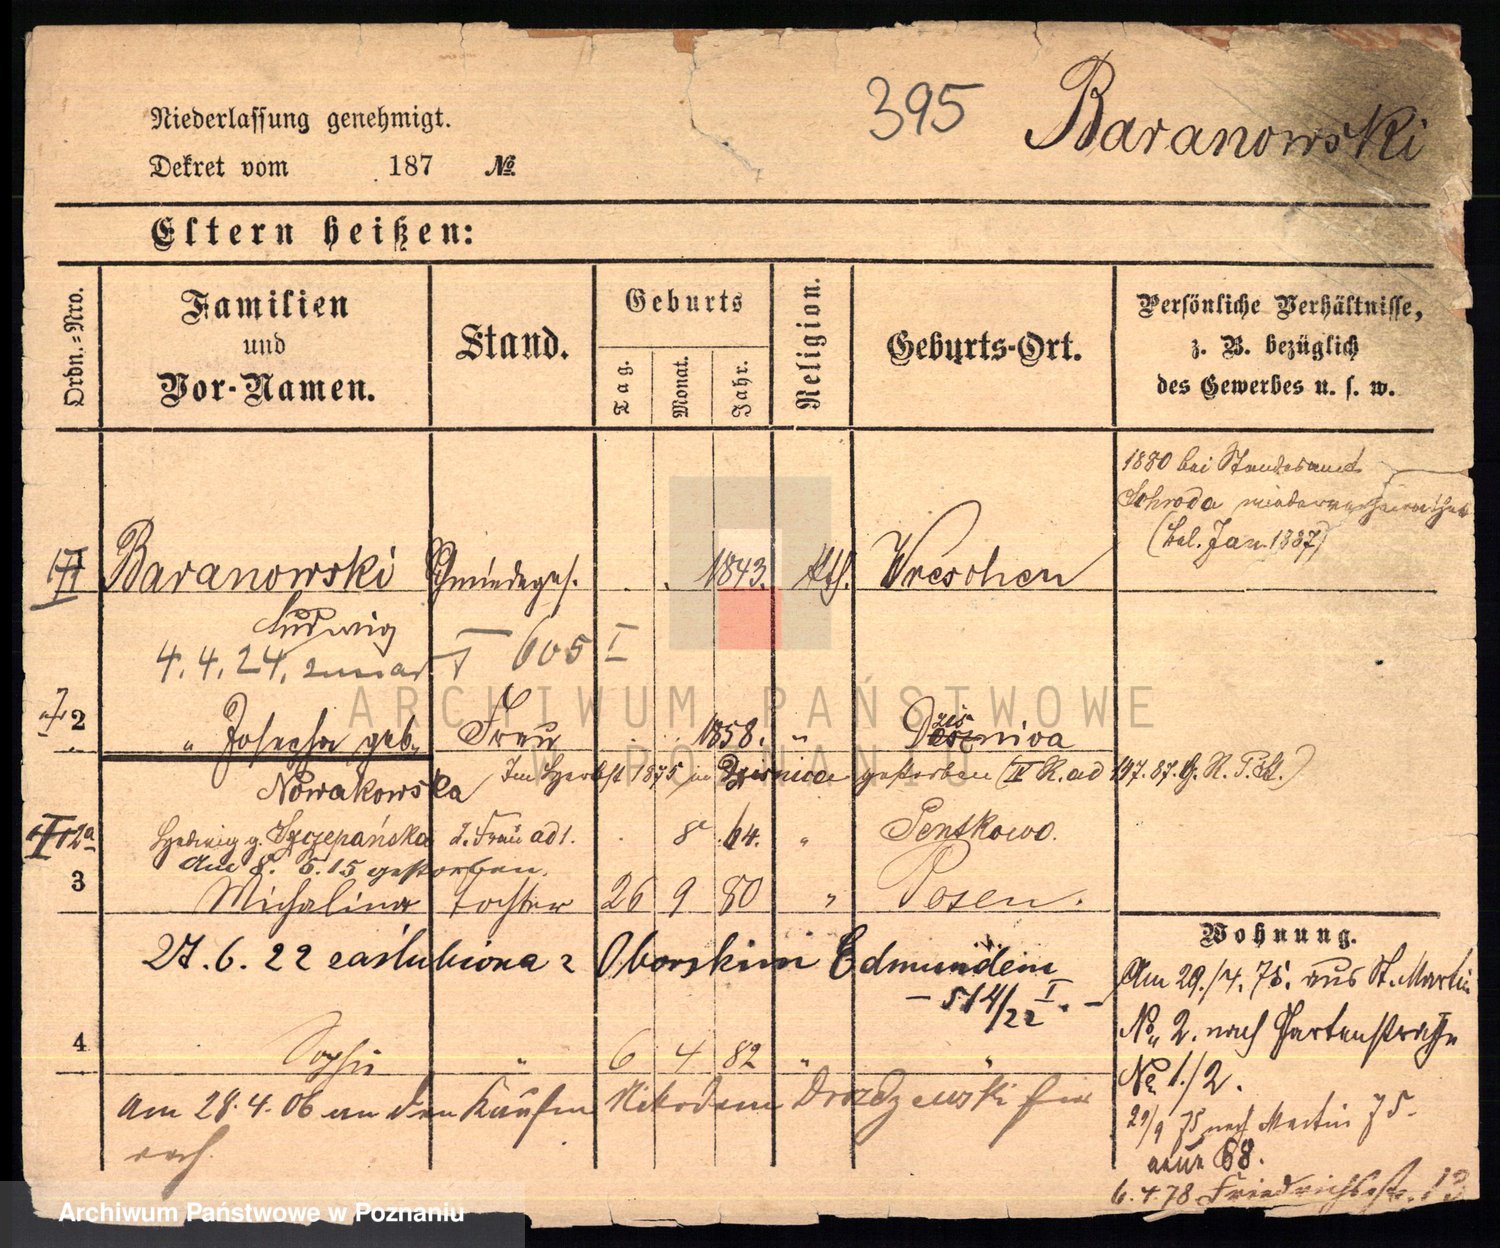 395 Baranowski
Niederlassung genehmigt.
Dekret vom 187 №
Eltern heißen:
Ordn.-Nro.
Familien
und
Vor-Namen.
Stand.
Geburts
Tag.
Monat.
Jahr.
Religion.
Geburts-Ort.
Persönliche Verhältnisse,
z. B. bezüglich
des Gewerbes u. s. w.
1880 bei Standesamt
Schroda wiederverheirathet
(bel. Jan. 1887)
1 Baranowski Schmiedeges. 1843. kth. Wreschen
Ludwig
4. 4. 24. zmarł 605 I
2 " Josepha geb. Frau 1858. " Dzisznica
Nowakowska
Im Herbst 1875 in gestorben (II R. ad 197.87. G. R. P. St.)
2a Hedwig g. Szczepańska 2. Frau ad 1. 8 64. " Pentkowo.
Am 8. 6. 15 gestorben.
3 Michalina Tochter 26 9 80 " Posen.
27. 6. 22 zaślubiona z Oborskim Edmundem
- 514/22 I. -
4 Sophie " 6 4 82 " "
Am 28. 4. 06 an den Käufm Nikodem Drozdzewski hier
verh.
Wohnung.
Am 29./4. 75. aus St. Martin
No. 2. nach Gartenstraße
No 1./2.
29/9 75 nach Martin 75.
neue 68.
6. 4. 78 Friedrichstr. 13
ARCHIWUM PAŃSTWOWE
W POZNANIU
Archiwum Państwowe w Poznaniu